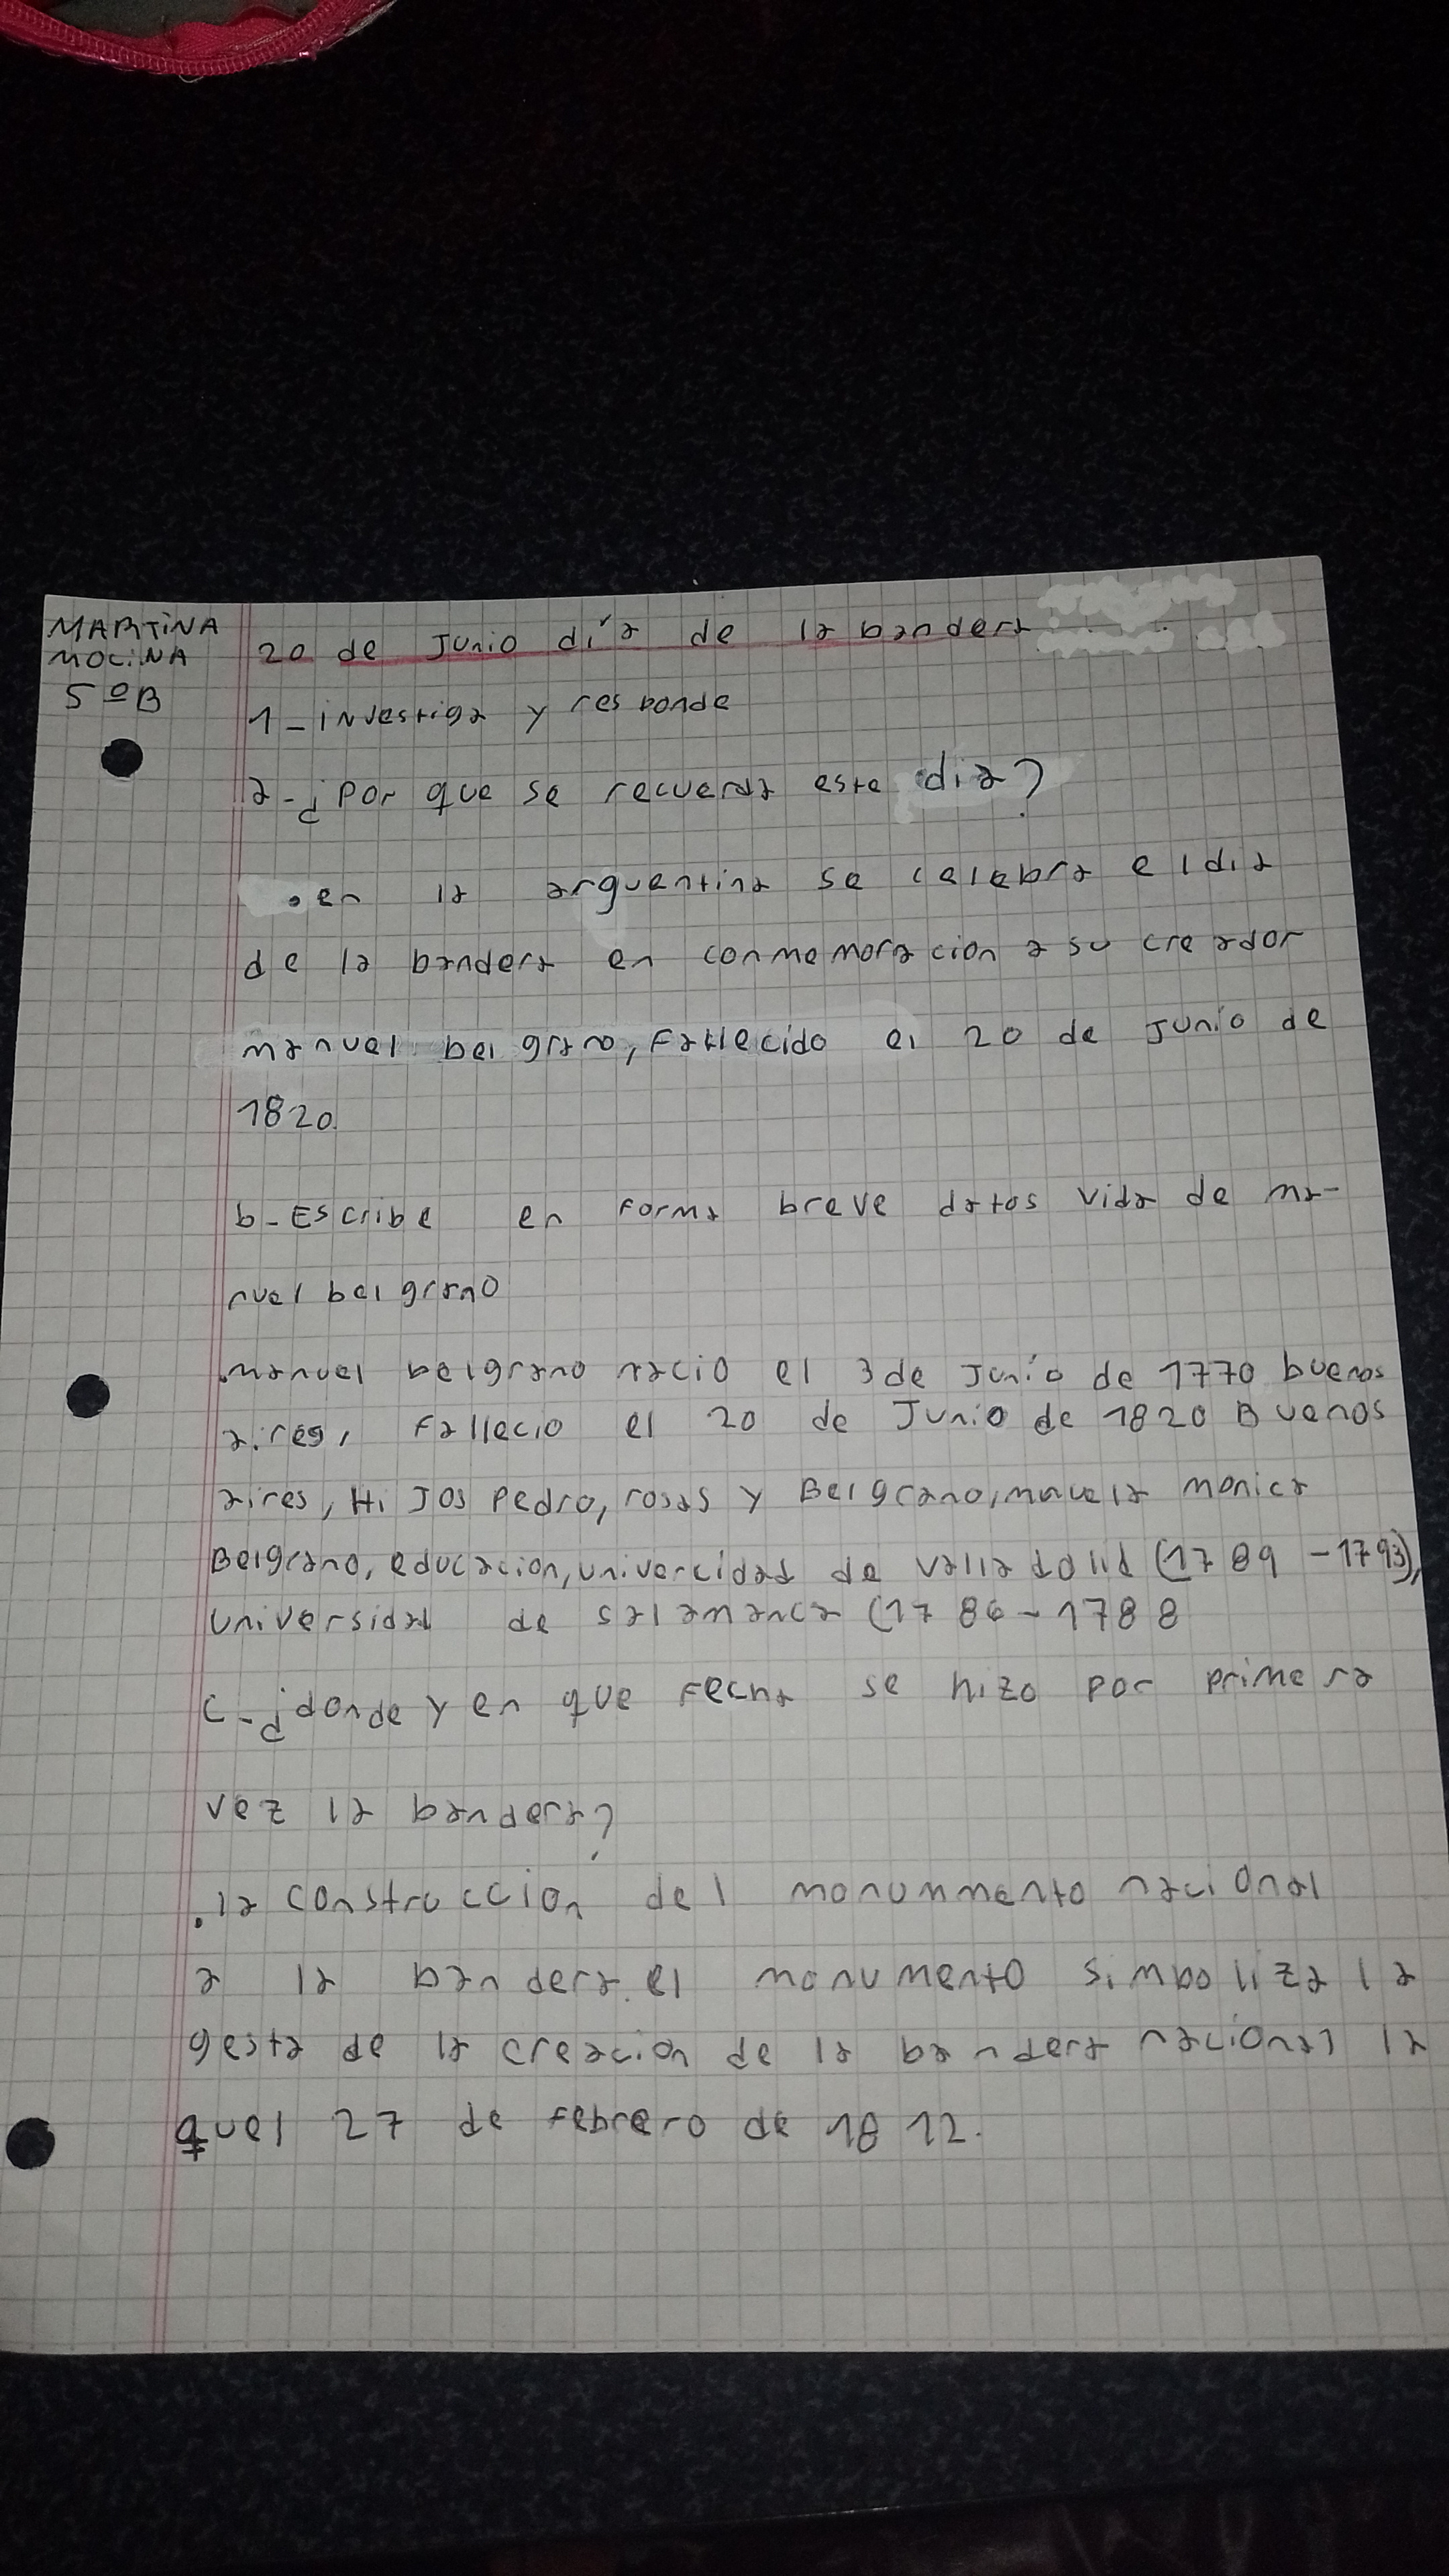 MARTINA
MOLINA
5ºB
20 de Junio día de la bandera
1-investiga y responde
a-¿Por que se recuerda este dia?
.en la arguentina se celebra el dia
de la bandera en conmemoracion a su creador
manuel belgrano, Fallecido el 20 de Junio de
1820.
b-Escribe en forma breve datos vida de ma-
nuel belgrano
.manuel belgrano nacio el 3 de Junio de 1770 buenos
aires, Fallecio el 20 de Junio de 1820 Buenos
aires, HiJos Pedro, rosas y Belgrano, manuela monica
Belgrano, educacion, univercidad de valladolid (1789-1793),
universidad de salamanca (1786-1788
C-¿donde y en que fecha se hizo por primera
vez la bandera?
.la construccion del monunmento nacional
a la bandera. el monumento simboliza la
gesta de la creacion de la bandera nacional la
quel 27 de febrero de 1812.